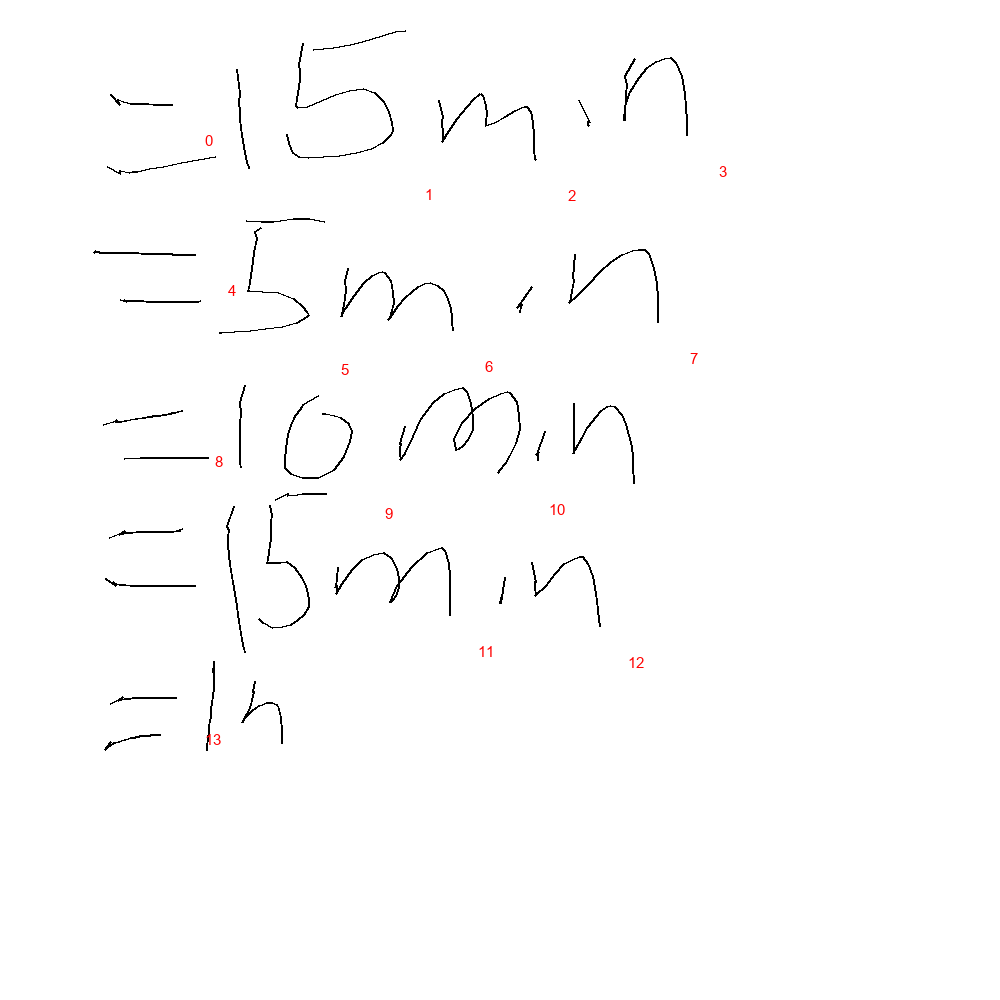 =15 min
0 1 2 3
=5 min
4 5 6 7
=10 min
8 9 10
=15 min
11 12
=1h
13